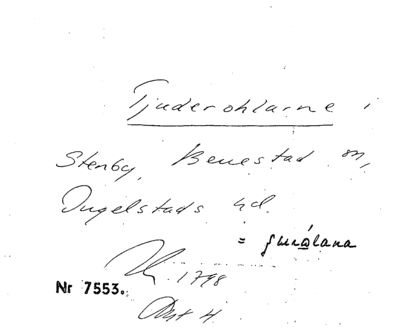 Tjuderohlarne i
Stenby, Benestad sn,
Ingelstads hd.
=
1798
Nr 7553.
Akt 4